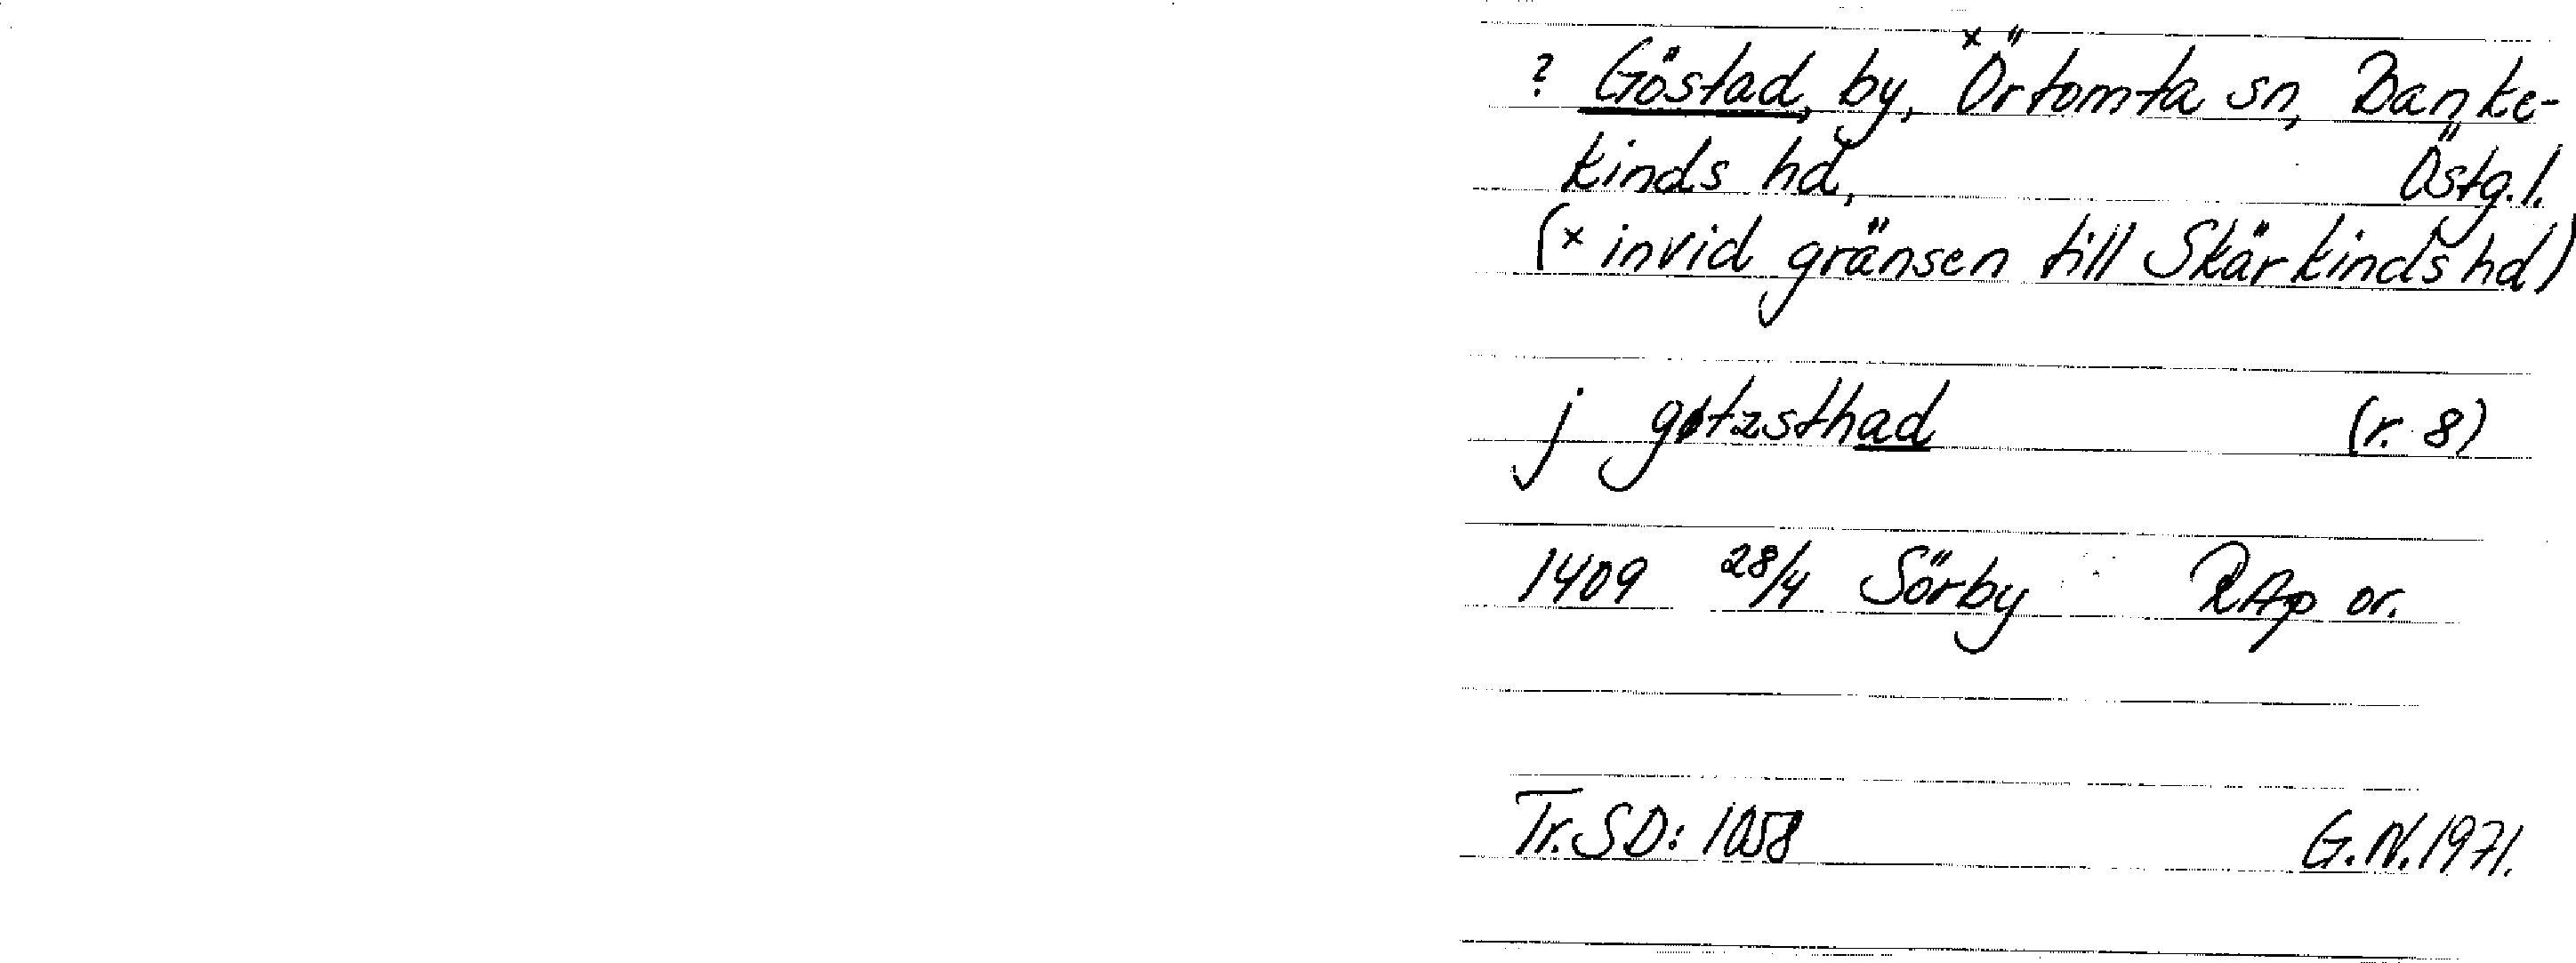 ? Göstad, by, ˣÖrtomta sn, Banke-
kinds hd, Östg.l.
(ˣ invid gränsen till Skärkinds hd)
j gøtzsthad (r. 8)
1409 28/4 Sörby RAp or.
Tr. SD: 1058 G.N. 1971.